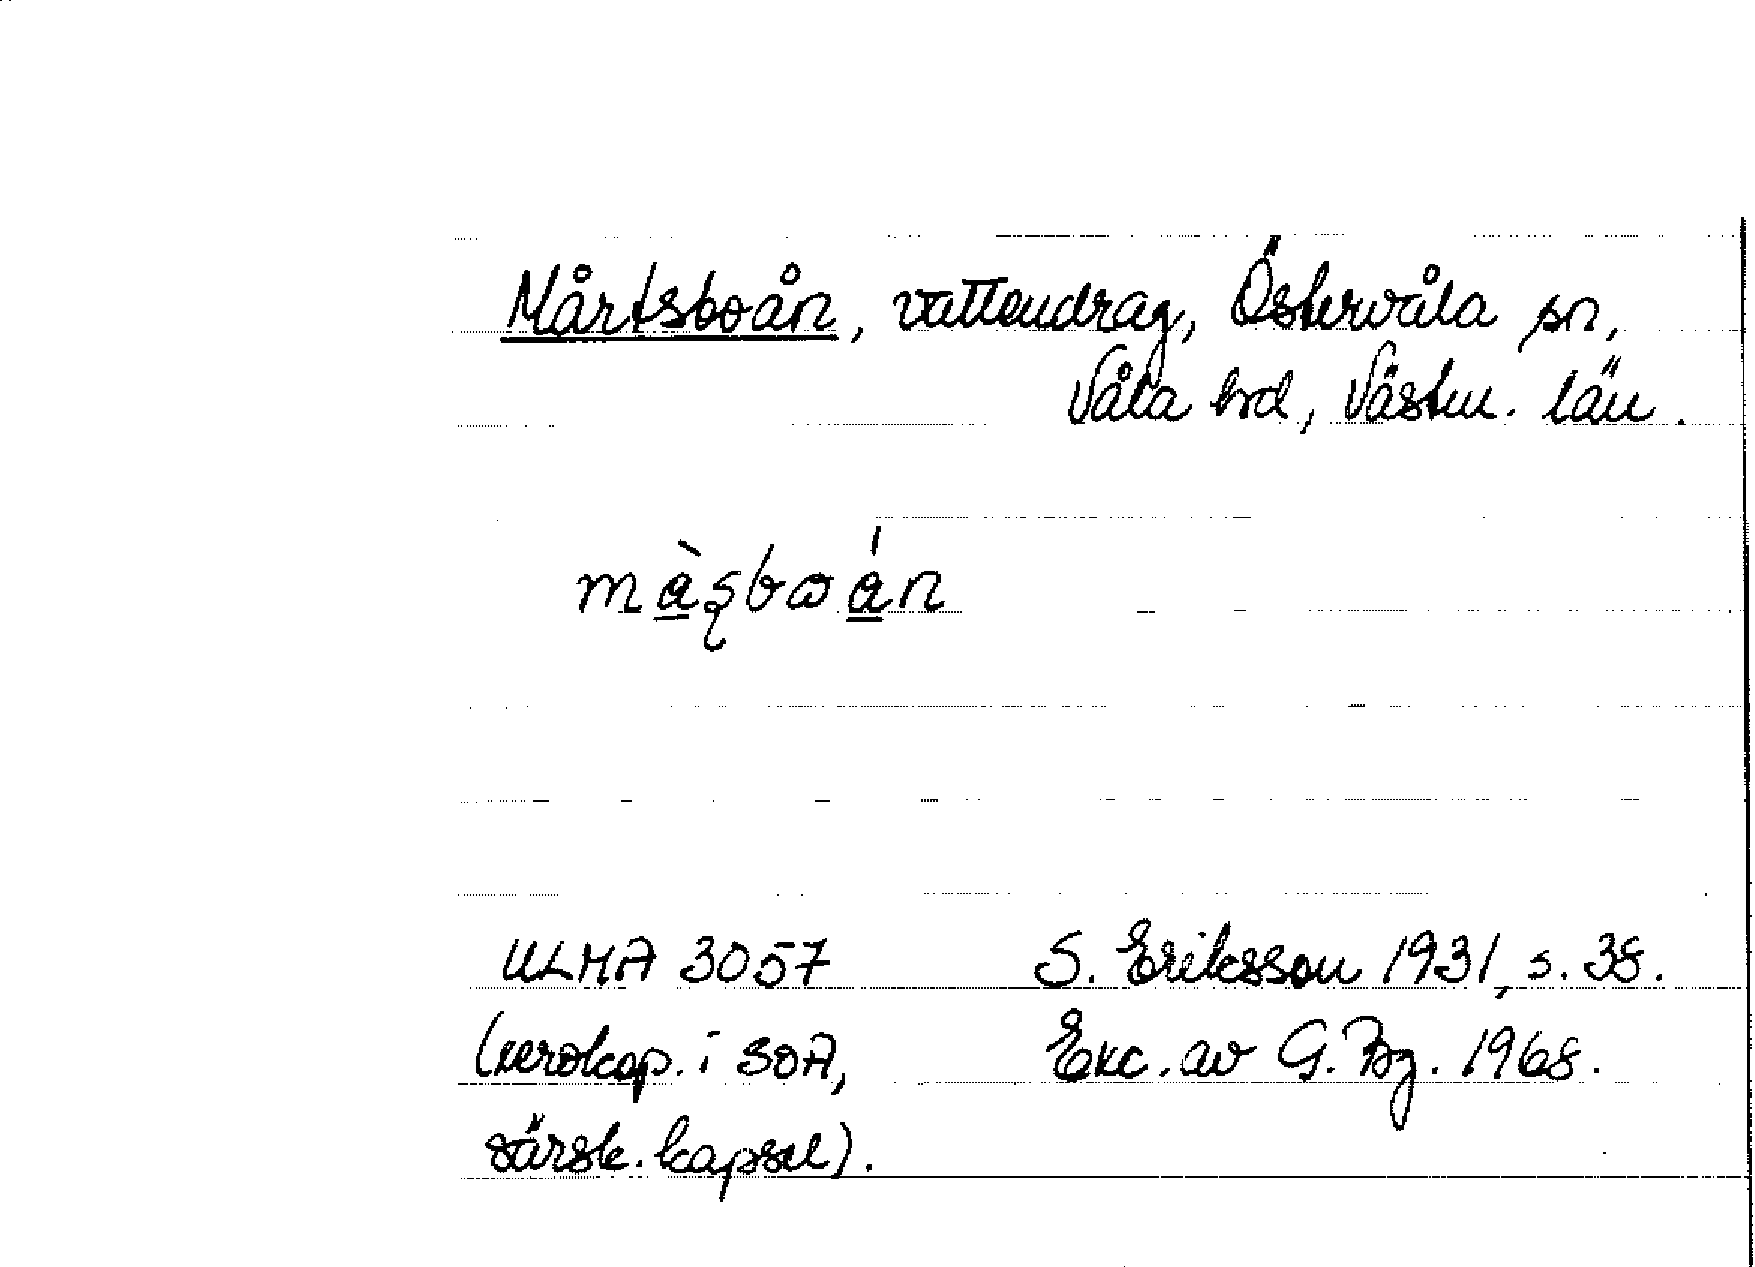 Mårtsboån, vattendrag, Östervåla sn,
Våla hd, Västm. län.
màʂbωán
ULMA 3057 S. Eriksson 1931, s. 38.
(xerokop. i SOA, Exc. av G. Bg. 1968.
särsk. kapsel).